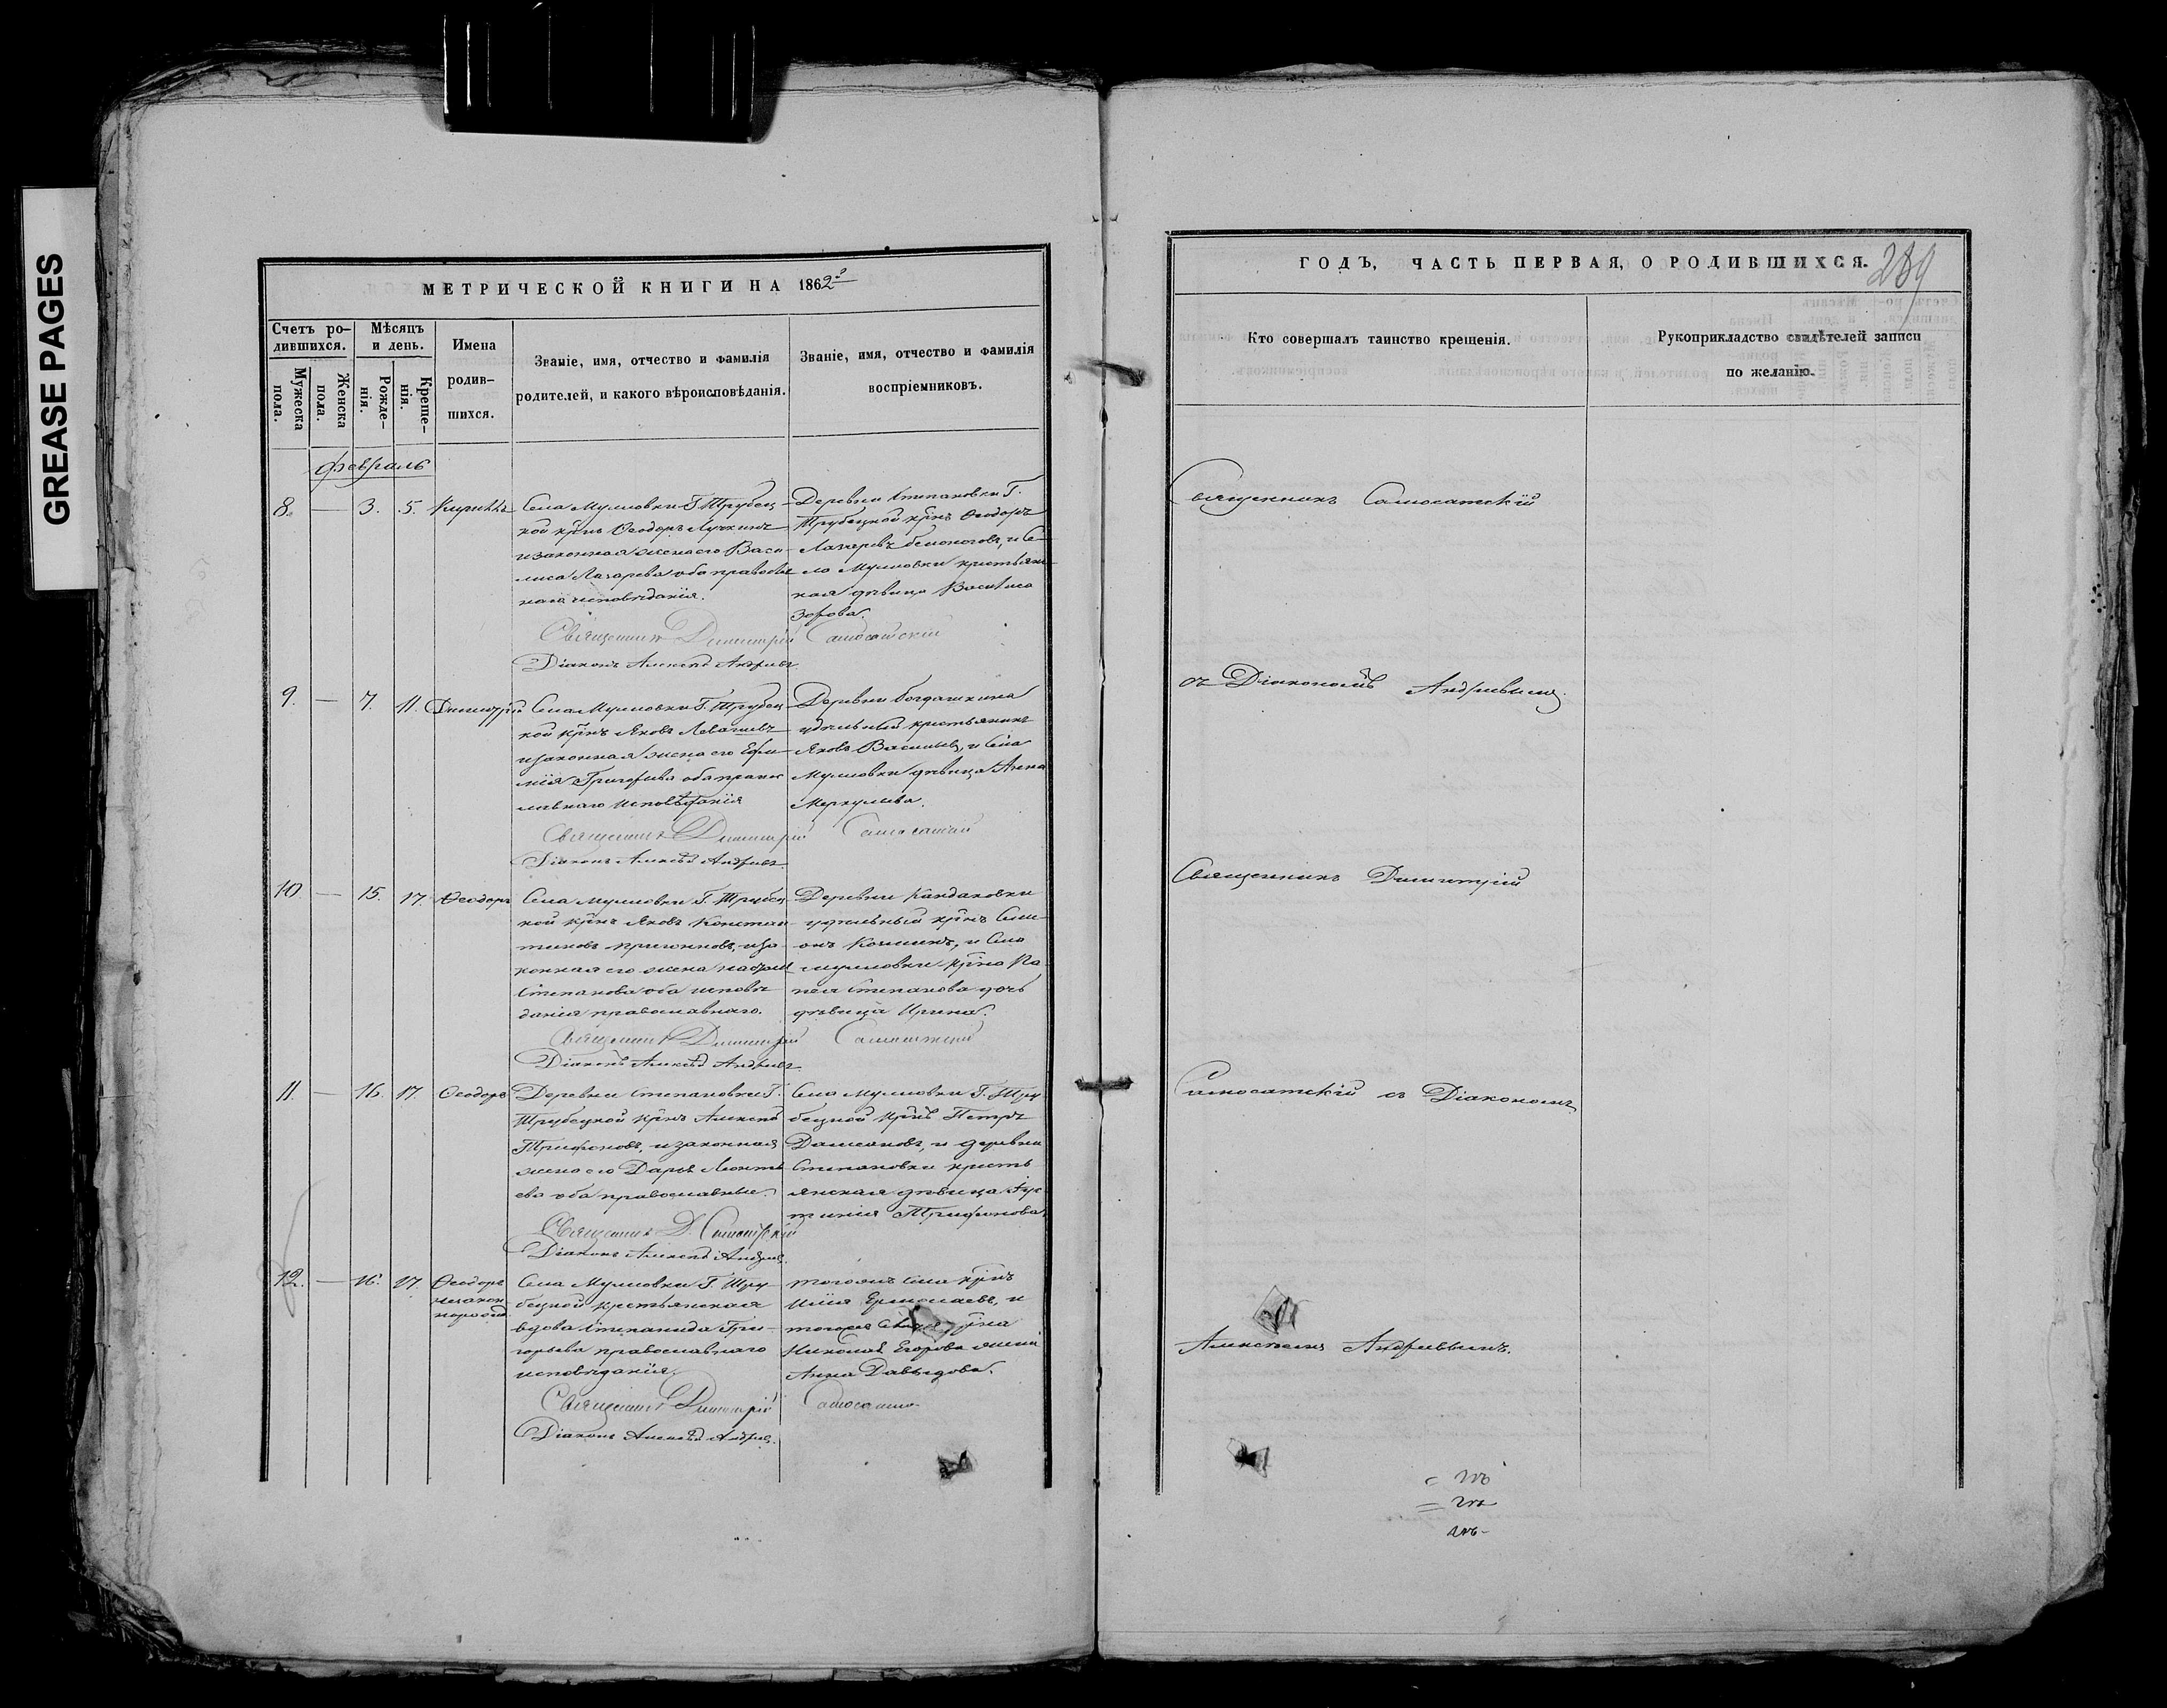 GREASE PAGES
МЕТРИЧЕСКОЙ КНИГИ НА 1862й
Счетъ ро-
дившихся.
Мѣсяцъ
и день.
Имена
родив-
шихся.
Мужеска
пола.
Женска
пола.
Рожде-
нія.
Креще-
нія.
Званіе, имя, отчество и фамилія
родителей, и какого вѣроисповѣданія.
Званіе, имя, отчество и фамилія
воспріемниковъ.
Февраль
8. — 3. 5. Кириллъ
Села Мулловки Г. Трубец
кой крнъ Ѳеодоръ
и законная жена его Васи-
лиса Лазарева оба православ
наго исповѣданія.
Деревни Степановки Г.
Трубецкой крнъ Ѳеодоръ
Лазаревъ и Се-
ла Мулловки крестьян
ская дѣвица Василиса
Священникъ Димитрій Самосатскій
Діаконъ Алексѣй Андреевъ
9. — 7. 11. Димитрій
Села Мулловки Г. Трубец
кой крнъ Яковъ
и законная жена его Ефи-
мія Григорьева оба право
славнаго исповѣданія
Деревни Богдашкина
удѣльный крестьянинъ
Яковъ Васильевъ, и Села
Мулловки дѣвица Анна
Меркульева.
Священникъ Димитрій Самосатскій
Діаконъ Алексѣй Андреевъ
10. — 15. 17. Ѳеодоръ
Села Мулловки Г. Трубец
кой крнъ Яковъ Констан
тиновъ и за
конная его жена
Степанова оба исповѣ
данія православнаго.
Деревни Кандаковки
удѣльный крнъ Сими-
онъ и Села
Мулловки крна Па
Степанова дочь
дѣвица Ирина.
Священникъ Димитрій Самосатскій
Діаконъ Алексѣй Андреевъ
11. — 16. 17. Ѳеодоръ
Деревни Степановки Г.
Трубецкой крнъ Алексѣй
Трифоновъ, и законная
жена его Дарья Леонть
ева оба православные.
Села Мулловки Г. Тру
бецкой крнъ Петръ
и деревни
Степановки кресть
янская дѣвица Іус
тинія Трифонова.
Священникъ Д. Самосатскій
Діаконъ Алексѣй Андреевъ
12. — 16. 17. Ѳеодоръ
незакон
норожд.
Села Мулловки Г. Тру
бецкой крестьянская
вдова Степанида Гри-
горьева православнаго
исповѣданія.
тогоже села крнъ
Илія Ермолаевъ, и
тогоже села крна
Николая Егорова жена
Анна Давыдова.
Священникъ Димитрій
Діаконъ Алексѣй Андреевъ
ГОДЪ, ЧАСТЬ ПЕРВАЯ, О РОДИВШИХСЯ.
289
Кто совершалъ таинство крещенія.
Рукоприкладство свидѣтелей записи
по желанію.
Священникъ Самосатскій
съ Діакономъ Андреевымъ.
Священникъ Димитрій
Самосатскій съ Діакономъ
Алексѣемъ Андреевымъ.